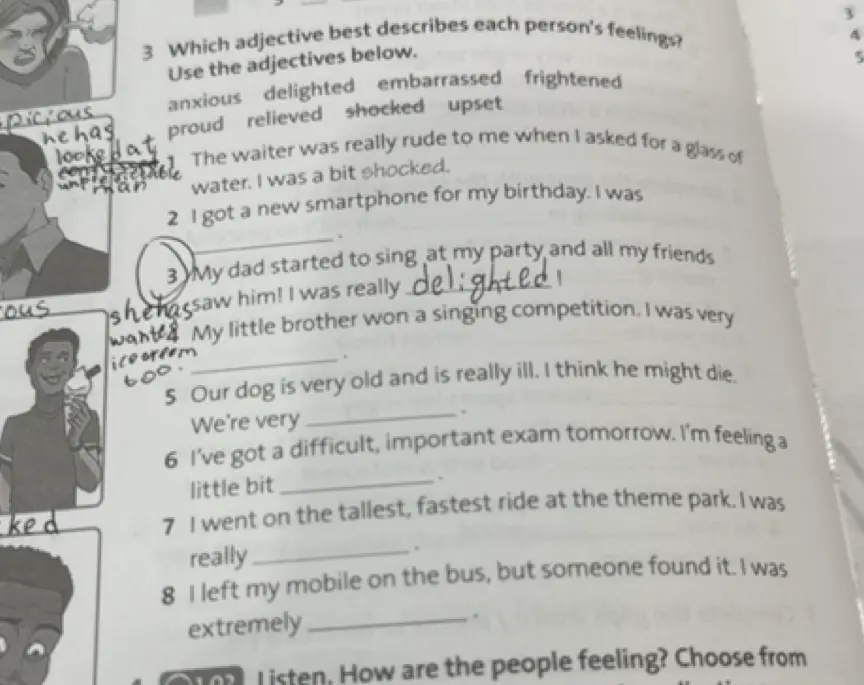 3
4
5
3 Which adjective best describes each person's feelings?
Use the adjectives below.
anxious delighted embarrassed frightened
proud relieved shocked upset
picious
he has
looked at
man
1 The waiter was really rude to me when I asked for a glass of
water. I was a bit shocked.
2 I got a new smartphone for my birthday. I was
____________.
3 My dad started to sing at my party and all my friends
saw him! I was really delighted!
ous
she has
wanted
icecream
too.
4 My little brother won a singing competition. I was very
____________.
5 Our dog is very old and is really ill. I think he might die.
We're very ____________.
6 I've got a difficult, important exam tomorrow. I'm feeling a
little bit ____________.
ked
7 I went on the tallest, fastest ride at the theme park. I was
really ____________.
8 I left my mobile on the bus, but someone found it. I was
extremely ____________.
Listen. How are the people feeling? Choose from